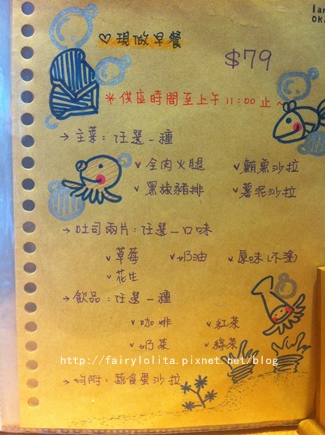 ♡現做早餐
$79
※供應時間至上午11:00止~
→主菜:任選一種
✓全肉火腿 ✓鮪魚沙拉
✓黑胡椒豬排 ✓薯泥沙拉
→吐司兩片:任選一口味
✓草莓 ✓奶油 ✓原味(不塗)
✓花生
→飲品:任選一種
✓咖啡 ✓紅茶
✓奶茶 ✓綠茶
http://fairylolita.pixnet.net/blog
→均附:蔬食蛋沙拉